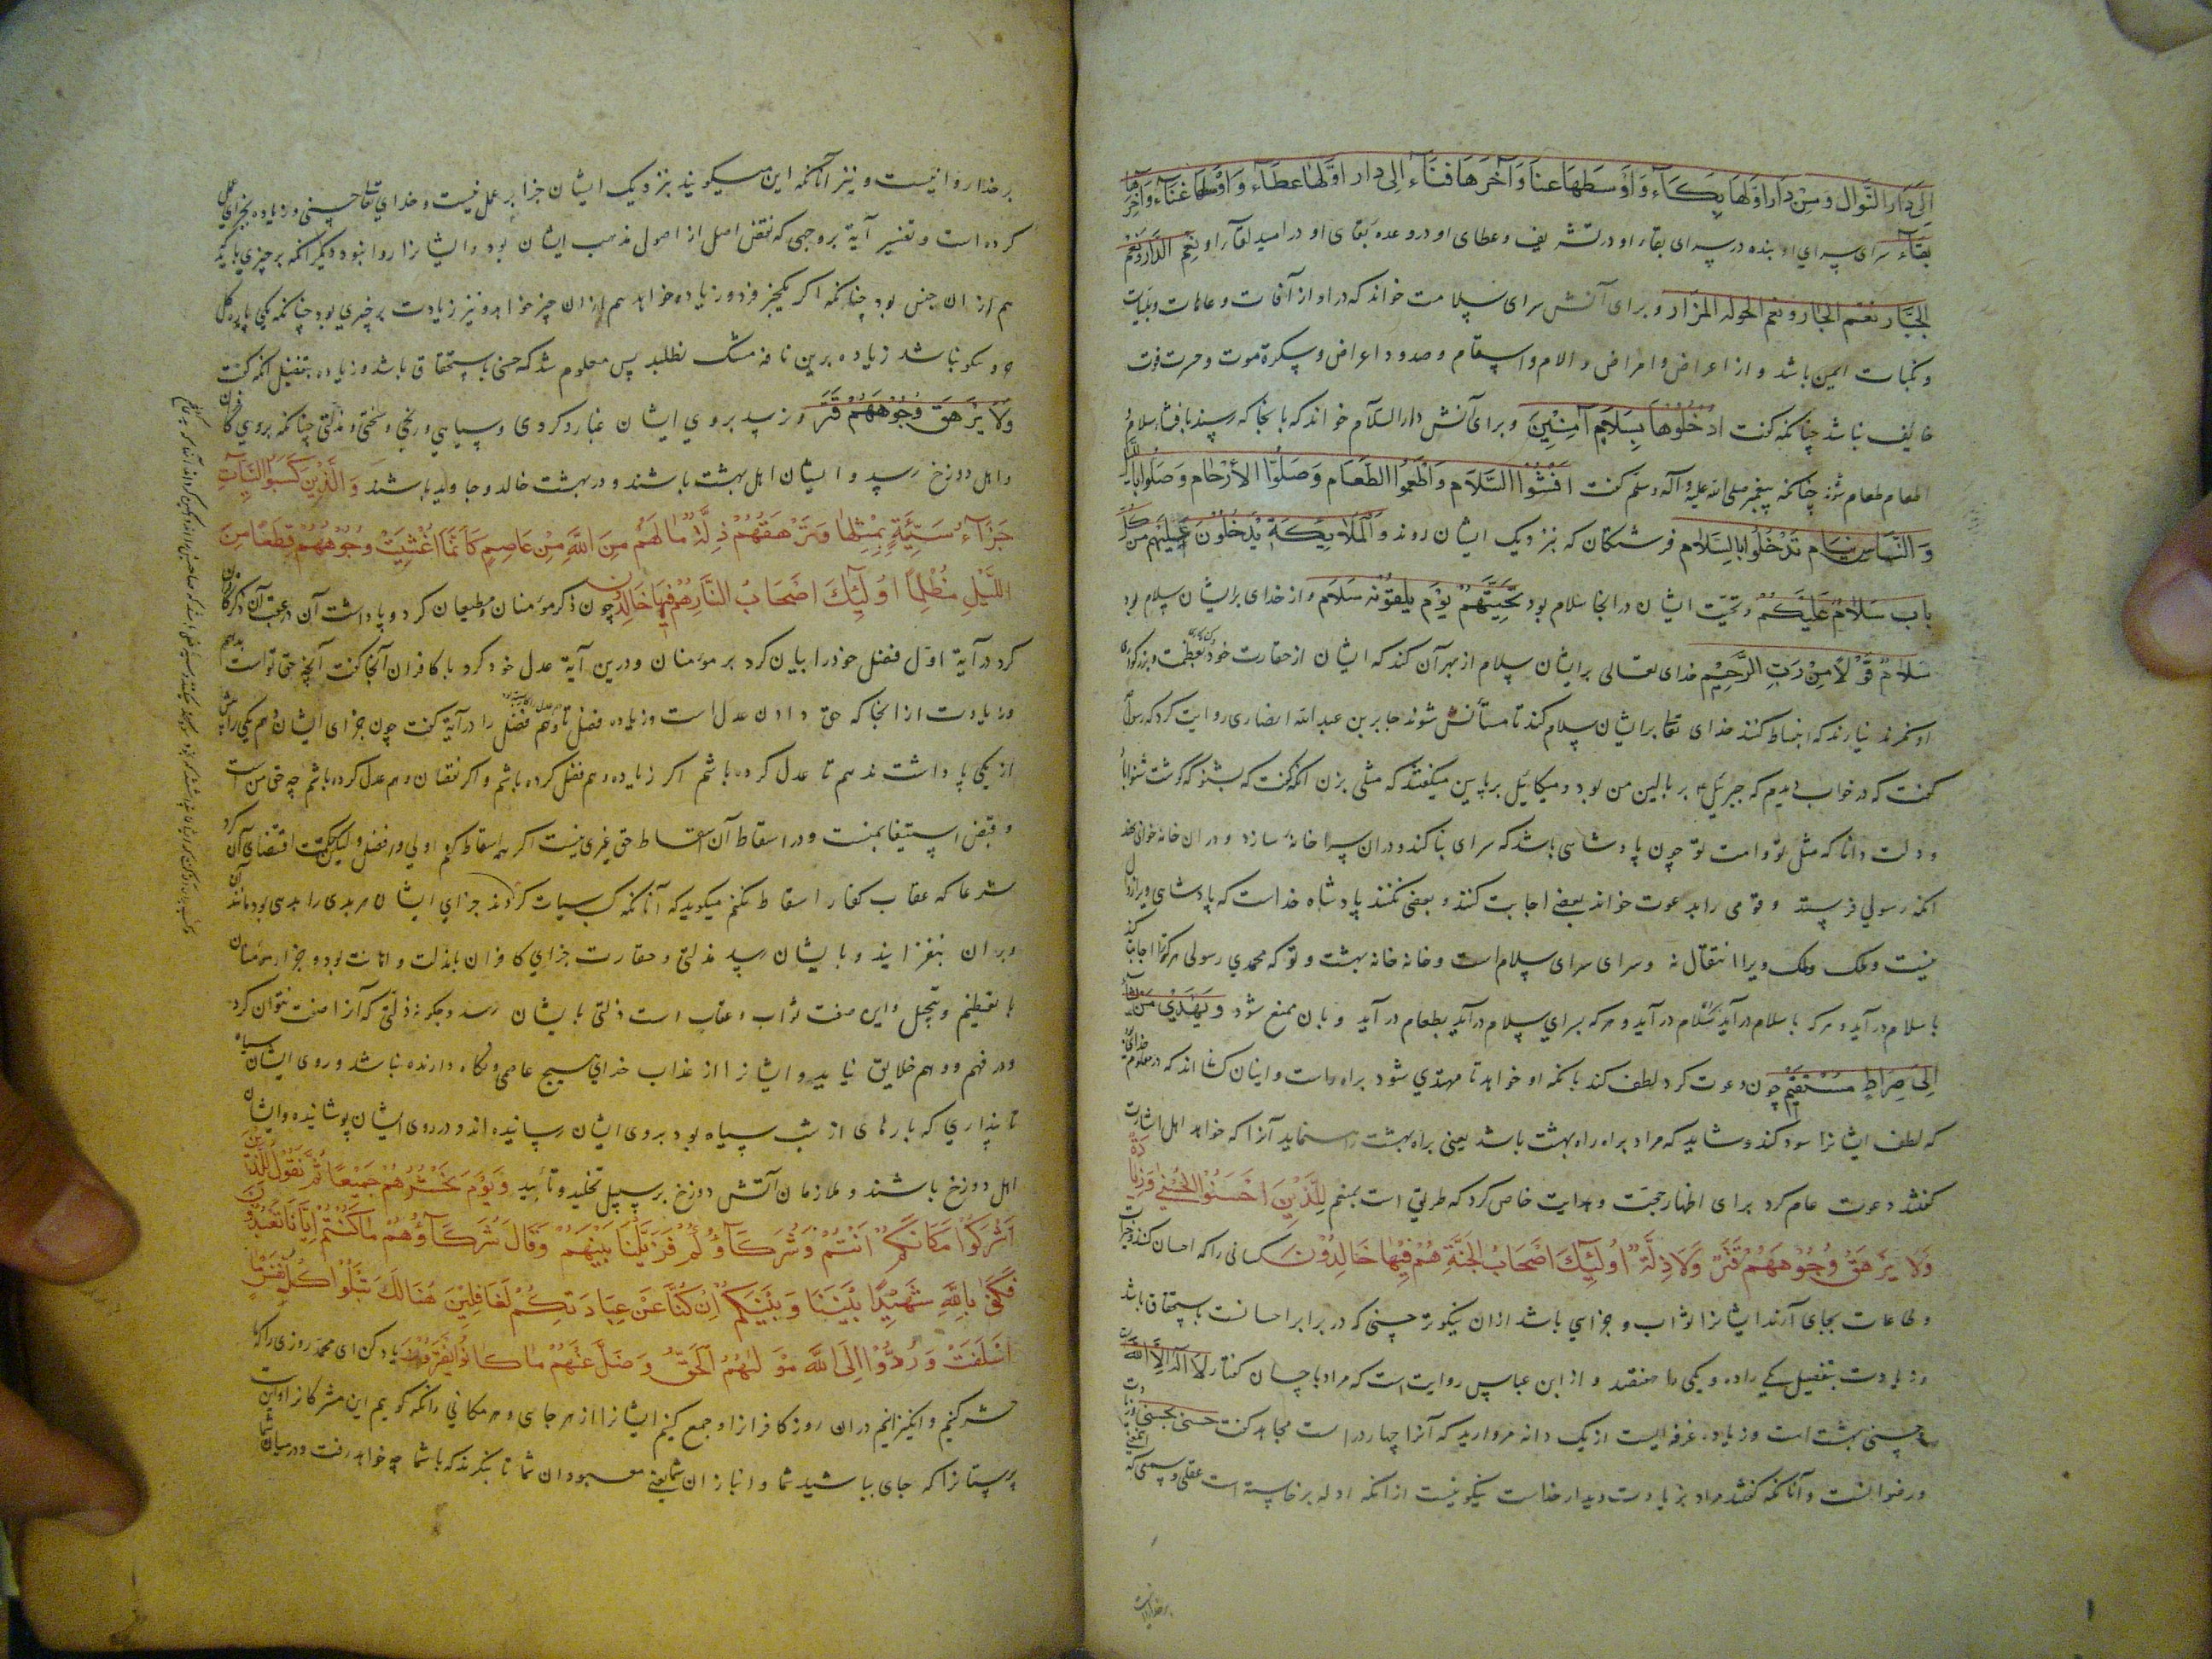 اِلی دَارِ النَّوَال وَمِنْ دَار اَوَّلهَا بُكَآء وَاَوْسَطهَا عنَا وَآخرَهَا فَنَآء اِلی دَار اَوَّلهَا عَطَآء وَاَوْسَطهَا غنَآء وَآخرهَا
بقآء سرای سرای او بنده در سرای بقاء او در تشریف و عطای او در وعده بقای او در امید لقآء او نِعْمَ الدَّار وَنِعْمَ
الجَبَّار نِعْمَ الجَار و نِعْمَ المزار و برای آنش سرای سلامت خواند که در او از آفات و عاهات و بلیّات
و نکبات ایمن باشد و از اعراض و امراض و الام و اسقام و صدود اعراض و سکرة موت و حسرت فوت
خایف نباشد چنانکه گفت اُدْخُلُوْهَا بِسَلَامٍ آمِنِیْنَ و برای آنش دار السّلام خواند که بانجا که رسند بافشاء سلام و
اطعام طعام شوند چنانکه پیغمبر صلی الله علیه و آله و سلم گفت اَفْشُوْا السَّلَام وَاَطْعِمُوا الطَّعَام وَصِلُوْا الْاَرْحَام وَصَلُّوا بِاللیل
وَالنَّاس نیَام تَدْخُلُوا بالسَّلَام فرشتگان که بنزدیک ایشان روند وَالْمَلَائِكَةُ یَدْخُلُوْنَ عَلَیْهِم مِن كُلِّ
بَاب سَلَامٌ عَلَیْكُمْ و تحیّت ایشان در انجا سلام بود تَحِیَّتُهُمْ یَوْمَ یَلْقَوْنَه سَلَام و از خدای بر ایشان سلام بود
سَلَامٌ قَوْلًا مِنْ رَبّ الرَّحِیْم خدای تعالی بر ایشان سلام از بهر آن کند که ایشان از حقارت خود و عظمت و بزرگواری
او شرم دارند نیارند که انبساط کنند خدای تعا بر ایشان سلام کند تا مستأنس شوند جابر بن عبد الله انصاری روایت کرد که رسول
گفت که در خواب دیدم که جبرئیل بر بالین من بود و میکائیل بر پایین میگفتند که مثلی بزن انکه گفت که بشنو که گوشت شنوا باد
و دلت دانا که مثل تو و امت تو چون پادشاهی باشد که سرای بنا کند و در ان سرا خانه سازد و در ان خانه خوانی نهد
انکه رسولی فرستد و قومی را بدعوت خواند بعضی اجابت کنند و بعضی نکنند پادشاه خداست که پادشاهی ویرا زوال
نیست و ملک و ملک ویرا انتقال نه و سرای سرای سلام است و خانه خانه بهشت و تو که محمدی رسولی هر که ترا اجابت کند
باسلام در آید و هر که باسلام در آید بسلام در آید و هر که بسرای سلام در آید بطعام در آید و بان ممتع شود وَیَهْدِیْ مَنْ یَشَآء
اِلی صِرَاطٍ مُسْتَقِیْم چون دعوت کرد لطف کند با انکه او خواهد تا مهتدی شود براه راست و اینان کسانند که در معلوم خدای
که لطف ایشانرا سود کند و شاید که مراد براه راه بهشت باشد یعنی براه بهشت راه نماید آنرا که خواهد اهل اشارت
گفتند دعوت عام کرد برای اظهار حجّت و هدایت خاص کرد که طریق است بمنعم لِلَّذِیْنَ اَحْسَنُوْا الْحُسْنٰی وَزِیَادَةٌ
وَلَا یَرْهَقُ وُجُوْهَهُمْ قَتَرٌ وَلَا ذِلَّةٌ اُولٰئِكَ اَصْحَابُ الْجَنَّةِ هُمْ فِیْهَا خَالِدُوْنَ کسانی را که احسان کنند و خیرات
و طاعات بجای آرند ایشانرا ثواب و جزایی باشد ازان نیکوتر حسنی که در برابر احسانست باستحقاق باشد
و زیادت بتفضیل و از ابن عباس روایت است که مراد باحسان گفتار لَا اِلٰهَ اِلَّا اللّٰه
حسنی بهشت است و زیاده غرفه ایست از یک دانه مروارید که آنرا چهار در است مجاهد گفت حسنی بحسنی و زیادت
و رضوانست و آنانکه گفتند مراد بزیادت دیدار خداست نیکو نیست از انکه ادله برخاسته است عقلی و سمعی که
بر خدا روا نیست
بر خدا روا نیست و نیز آنانکه این میگویند بنزدیک ایشان جزا بر عمل نیست و خدای تعا حسنی و زیاده بجزای عمل
کرده است و تفسیر آیة بر وجهی که نقض اصل از اصول مذهب ایشان بود ایشانرا روا نبود و دیگر انکه بر چیزی باید که
هم از ان جنس بود چنانکه اگر یکچیز فزود و زیاده خواهد هم ازان چیز خواهد و نیز زیادت بر چیزی بود چنانکه یکی پاره گل
و نیکو نباشد زیاده برین نافه مشک نطلبد پس معلوم شد که حسنی باستحقاق باشد و زیاده بتفضیل انکه گفت
وَلَا یَرْهَقُ وُجُوْهَهُمْ قَتَر و نرسد بروی ایشان غبار و گردی و سیاهی و رنجی و سختی و مذلتی چنانکه بروی کافران
و اهل دوزخ رسد و ایشان اهل بهشت باشند و در بهشت خالد و جاوید باشند وَالَّذِیْنَ كَسَبُوْا السَّیِّئَاتِ
جَزَآءُ سَیِّئَةٍ بِمِثْلِهَا وَتَرْهَقُهُمْ ذِلَّةٌ مَا لَهُمْ مِنَ اللّٰهِ مِنْ عَاصِمٍ كَاَنَّمَا اُغْشِیَتْ وُجُوْهُهُمْ قِطَعًا مِنَ
اللَّیْلِ مُظْلِمًا اُولٰئِكَ اَصْحَابُ النَّارِ هُمْ فِیْهَا خَالِدُوْنَ چون ذکر مؤمنان و مطیعان کرد و پاداشت آن در عقب آن ذکر کافران
کرد در آیة اوّل فضل خود را بیان کرد بر مؤمنان و درین آیة عدل خود کرد با کافران آنجا گفت آنچه حق تو است بدهم
و زیادت از انجا که حق دادن عدل است و زیاده فضل را در آیة گفت چون جزای ایشان دهم یکی را بیش
از یکی پاداشت ندهم تا عدل کرده باشم اگر زیاده دهم فضل کرده باشم و اگر نقصان دهم عدل کرده باشم چه حق من است
و قبض استیفا بمنست و در اسقاط آن اسقاط حق غیری نیست اگر همه اسقاط کنم اولی و فضل ولیکن حکمت اقتضای آن کرد
شرعا که عقاب کفار اسقاط نکنم میگوید که آنانکه کسب سیّات کردند جزای ایشان هر بدی را بدی بود مانند آن
و بران نیفزایند و بایشان رسد مذلتی و حقارت جزای کافران بمذلت و اهانت بود و جزای مؤمنان
با تعظیم و تبجیل و این صفت ثواب و عقاب است ذلتی بایشان رسد و چگونه ذلتی که آنرا صفت نتوان کرد
و در فهم و وهم خلایق نیاید و ایشانرا از عذاب خدای هیچ عاصمی و نگاه دارنده نباشد و روی ایشان سیاه
تا پنداری که پارهای از شب سیاه بود بروی ایشان رسانیده اند و در روی ایشان پوشانیده و ایشان
اهل دوزخ باشند و ملازمان آتش دوزخ بر سبیل تخلید و تأبید وَیَوْمَ نَحْشُرُهُمْ جَمِیْعًا ثُمَّ نَقُوْلُ لِلَّذِیْنَ
اَشْرَكُوْا مَكَانَكُمْ اَنْتُمْ وَشُرَكَآؤُكُمْ فَزَیَّلْنَا بَیْنَهُمْ وَقَالَ شُرَكَآؤُهُمْ مَا كُنْتُمْ اِیَّانَا تَعْبُدُوْنَ
فَكَفٰی بِاللّٰهِ شَهِیْدًا بَیْنَنَا وَبَیْنَكُمْ اِنْ كُنَّا عَنْ عِبَادَتِكُمْ لَغَافِلِیْنَ هُنَالِكَ تَبْلُوْا كُلُّ نَفْسٍ مَا
اَسْلَفَتْ وَرُدُّوْا اِلَی اللّٰهِ مَوْلٰهُمُ الْحَقِّ وَضَلَّ عَنْهُمْ مَا كَانُوْا یَفْتَرُوْنَ یاد کن ای محمد روزی را که ما
حشر کنیم و انگیزانیم در ان روز کافرانرا و جمع کنیم ایشانرا از هر جای و هر مکانی و انکه گوییم این مشرکانرا و این بت
پرستانرا که جای بباشید شما و انبازان شما یعنی معبودان شما تا بنگرند که باشما چه خواهد رفت و در میان شما